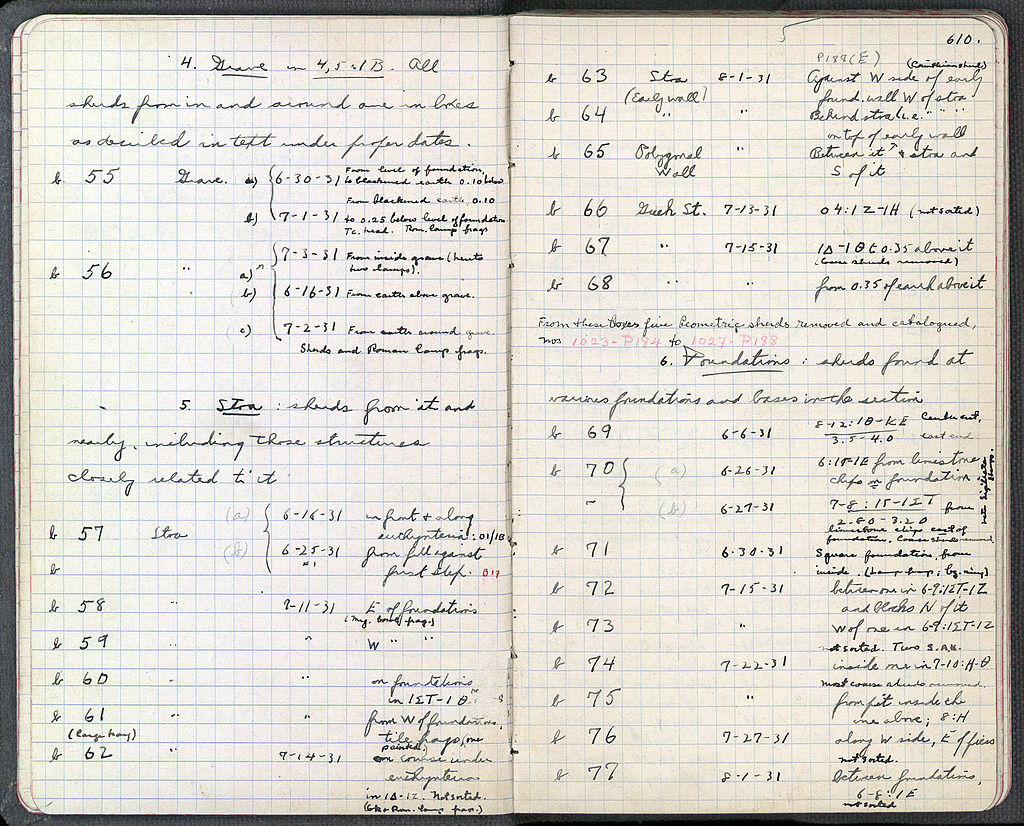 4. Grave in 4,5:1B. All
sherds from in and around are in boxes
as described in text under proper dates.
b 55 Grave. a) 6-30-31 From level of foundation,
to blackened earth 0.10 below
From blackened earth, 0.10
b) 7-1-31 to 0.25 below level of foundation
Tc. head. Rom. lamp frags
7-3-31 From inside grave (here
two lamps).
b 56 " a)
b) 6-16-31 From earth above grave.
c) 7-2-31 From earth around grave.
Sherds and Roman lamp frags.
5. Stoa : sherds from it and
nearby, including those structures
closely related to it
(a) 6-16-31 in front & along
b 57 Stoa euthynteria: 01/1B
(b) 6-25-31 from fill against
b first step. B17
b 58 " 7-11-31 E of foundations
(Meg. bowl frag.)
b 59 " " W " "
b 60 " " on foundations
in 1ΣT-1Θ
b 61 " " from W of foundations,
(large tray) tile frags, one
painted.
b 62 " 7-14-31 on course under
euthynteria
in 1Δ-1Z. Not sorted.
(Gk & Rom. lamp frags.)
610.
P188(E)
b 63 Stoa 8-1-31 Against W side of early
(Early wall) found. wall W of stoa
b 64 " " " Behind stoa (i.e. " " "
on top of early wall
b 65 Polygonal " Between it & stoa and
Wall S of it
b 66 Greek St. 7-13-31 04:1Z-1H (not sorted)
b 67 " 7-15-31 1Δ-1Θ to 0.35 above it
(coarse sherds removed)
b 68 " " " from 0.35 of earth above it
From these boxes five Geometric sherds removed and catalogued,
nos 1023-P184 to 1027-P188
6. Foundations : sherds found at
various foundations and bases in the section
b 69 6-6-31 8-12:1Θ-KE Center cut,
3.5-4.0 east end
b 70 (a) 6-26-31 6:1Σ-1E from limestone
chips on foundation
- (b) 6-27-31 7-8:1Σ-1ΣT from
2.80-3.20
limestone chips east of
foundation. Coarse sherds removed
b 71 6-30-31 Square foundation, from
inside. (Lamp frag; bg. ring)
b 72 7-15-31 between one in 6-9:1ΣT-1Z
and blocks N of it
b 73 " W of one in 6-9:1ΣT-1Z
not sorted. Two S.A.H.
b 74 7-22-31 inside one in 7-10:H-Θ
most coarse sherds removed.
b 75 " from pit inside the
one above; 8:H
b 76 7-27-31 along W side, E of piers
not sorted.
b 77 8-1-31 between foundations,
6-8:1E
not sorted